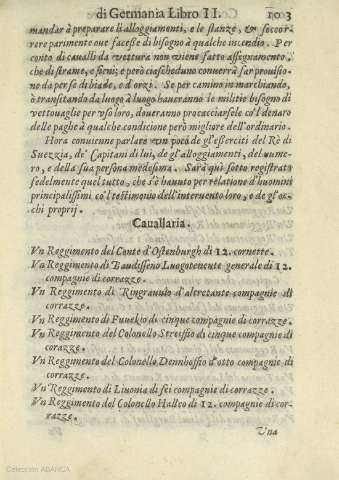 di Germania Libro II. 103
mandar à preparare li alloggiamenti, e le stanze, & soccor-
rere parimente oue facesse di bisogno à qualche incendio. Per
conto di caualli da vettura non viene fatto assegnamento
che di strame, e fieni; e però ciascheduno conuerrà far prouisio-
ne da per se di biade, e d'orzi. Se per camino in marchiando,
ò transitando da luogo à luogo haueranno le militie bisogno di
vettouaglie per vso loro, doueranno procacciarsele co'l denaro
delle paghe à qualche condicione però megliore dell'ordinario.
Hora conuienne parlare vn poco de gl'eserciti del Rè di
Suezzia, de' Capitani di lui, de gl'alloggiamenti, del nume-
ro, e della sua persona medesma. Sarà quì sotto registrato
fedelmente quel tutto, che s'è hauuto per relatione d'huomini
principalissimi co'l testimonio dell'interuento loro, e de gl'oc-
chi proprij.
Cauallaria.
Vn Reggimento del Conte d'Ostenburgh di 12. cornette.
Vn Reggimento di Baudisseno Luogotenente generale di 12.
compagnie di corrazze.
Vn Reggimento di Ringrauulo d'altretante compagnie di
corrazze.
Vn Reggimento di Fuuekio di cinque compagnie di corrazze.
Vn Reggimento del Colonello Streissio di cinque compagnie di
corazze.
Vn Reggimento del Colonello Dennhossio d'otto compagnie di
corrazze.
Vn Reggimento di Liuonia di sei compagnie di corrazze.
Vn Reggimento del Colonello Halleo di 12. compagnie di cor-
razze.
Vna
Colección ABANCA